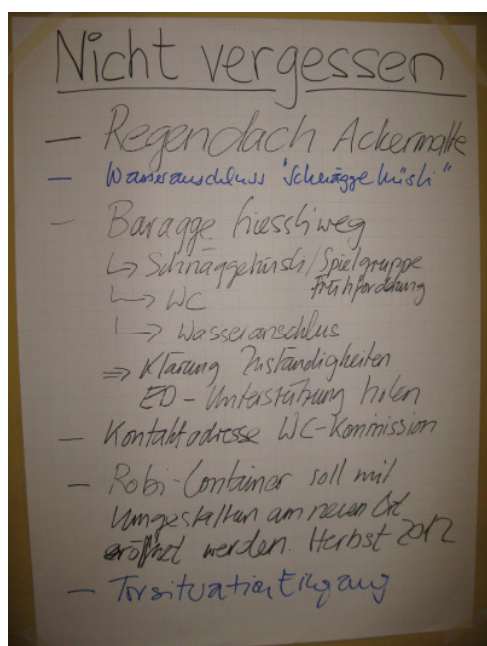 Nicht vergessen
– Regendach Ackermatte
– Wasseranschluss "Schnäggehüsli"
– Baragge Giessliweg
↳ Schnäggehüsli / Spielgruppe
Frühförderung
↳ WC
↳ Wasseranschlus
⇒ Klärung Zuständigkeiten
ED - Unterstützung holen
– Kontaktadresse WC-Kommission
– Robi-Container soll mit
Umgestaltun am neuen Ort
eröffnet werden. Herbst 2012
– Torsituation Eingang